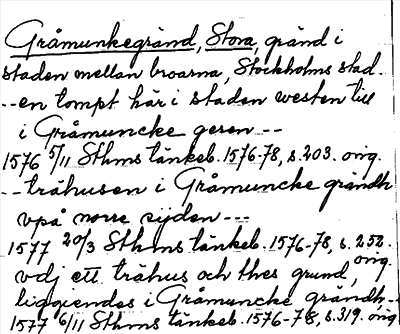 Gråmunkegränd, Stora, gränd i
staden mellan broarna, Stockholms stad.
--en tompt här i staden westen till
i Gråmuncke geren --
1576 5/11 Sthms tänkeb. 1576-78, s. 203. orig.
-- trähusen i Gråmuncke grändh
vpå norre sijden ---
1577 20/3 Sthms tänkeb. 1576-78, s. 258. orig.
vdj ett trähus och thes grund,
liggiendes i Gråmuncke grändh--
1577 6/11 Sthms tänkeb. 1576-78, s. 319. orig